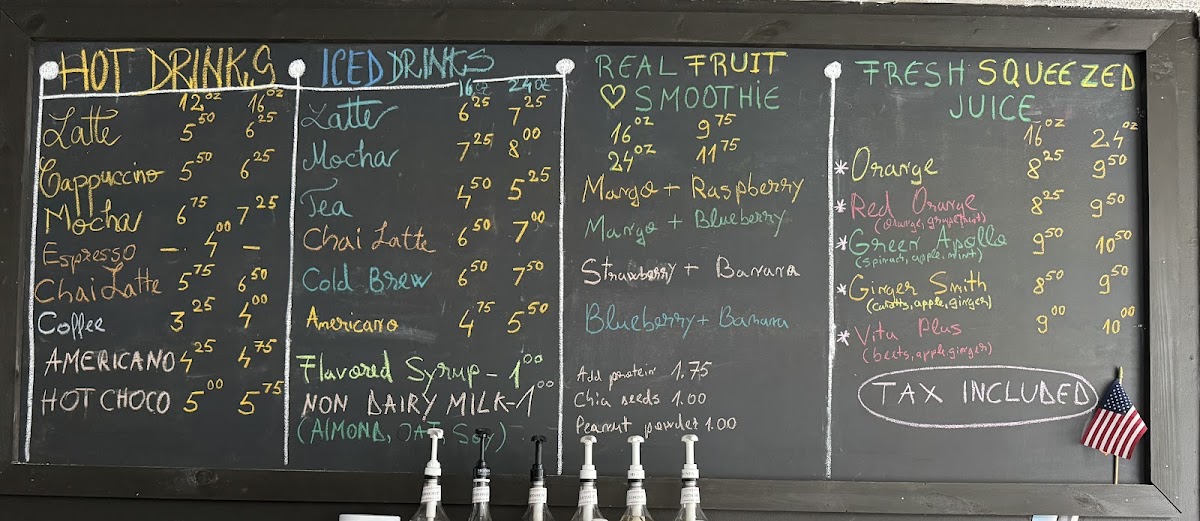 HOT DRINKS
12oz 16oz
Latte 5.50 6.25
Cappuccino 5.50 6.25
Mocha 6.75 7.25
Espresso — 4.00 —
Chai Latte 5.75 6.50
Coffee 3.25 4.00
AMERICANO 4.25 4.75
HOT CHOCO 5.00 5.75
ICED DRINKS
16oz 24oz
Latte 6.25 7.25
Mocha 7.25 8.00
Tea 4.50 5.25
Chai Latte 6.50 7.00
Cold Brew 6.50 7.50
Americano 4.75 5.50
Flavored Syrup - 1.00
NON DAIRY MILK - 1.00
(AlMOND, OAT, Soy)
REAL FRUIT
♡ SMOOTHIE
16oz 9.75
24oz 11.75
Mango + Raspberry
Mango + Blueberry
Strawberry + Banana
Blueberry + Banana
Add protein 1.75
Chia seeds 1.00
Peanut powder 1.00
FRESH SQUEEZED
JUICE
16oz 24oz
* Orange 8.25 9.50
* Red Orange 8.25 9.50
(orange, grapefruit)
* Green Apollo 9.50 10.50
(spinach, apple, mint)
* Ginger Smith 8.50 9.50
(carotts, apple, ginger)
* Vita Plus 9.00 10.00
(beets, apple, ginger)
TAX INCLUDED